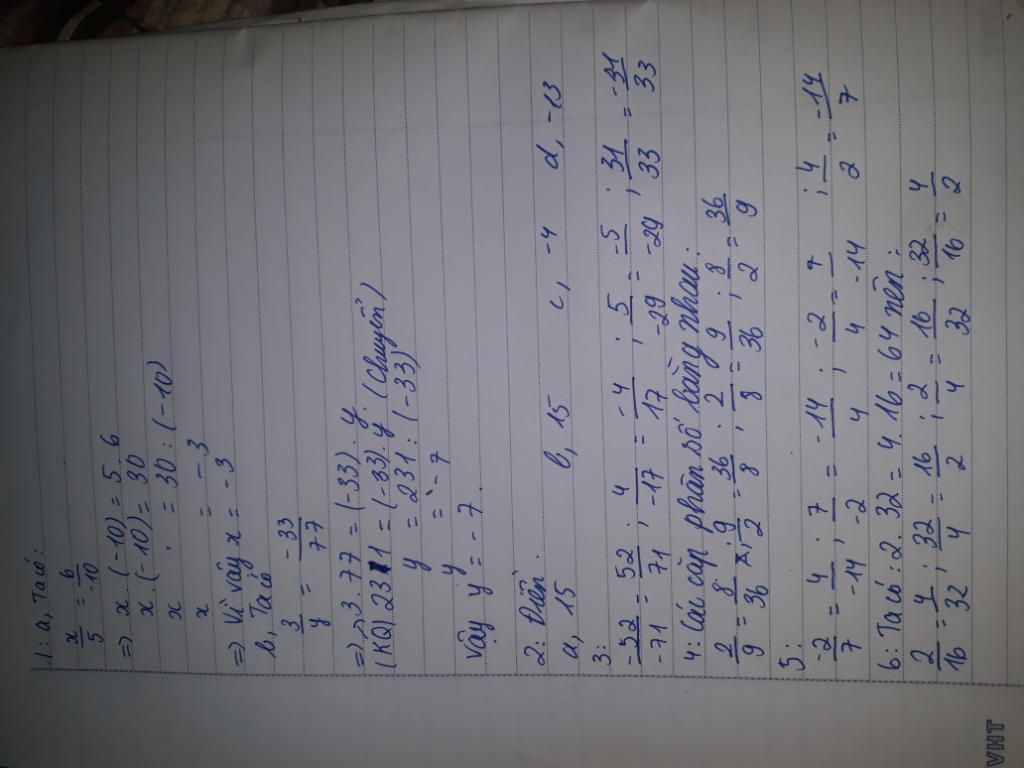 1: a, Ta có:
x/5 = 6/-10
=> x . (-10) = 5 . 6
x . (-10) = 30
x = 30 : (-10)
x = -3
=> Vì vậy x = -3
b, Ta có
3/y = -33/77
=> 3 . 77 = (-33) . y
(KQ) 231 = (-33) . y . (Chuyển)
y = 231 : (-33)
y = -7
Vậy y = -7
2: Điền:
a, 15 b, 15 c, -4 d, -13
3:
-52/-71 = 52/71 ; 4/-17 = -4/17 ; 5/-29 = -5/-29 ; 31/33 = -31/33
4: Các cặp phân số bằng nhau:
2/9 = 8/36 ; 9/2 = 36/8 ; 2/8 = 9/36 ; 8/2 = 36/9
5:
-2/7 = 4/-14 ; 7/-2 = -14/4 ; -2/4 = 7/-14 ; 4/2 = -14/7
6: Ta có: 2 . 32 = 4 . 16 = 64 nên:
2/16 = 4/32 ; 32/4 = 16/2 ; 2/4 = 16/32 ; 32/16 = 4/2
VHT